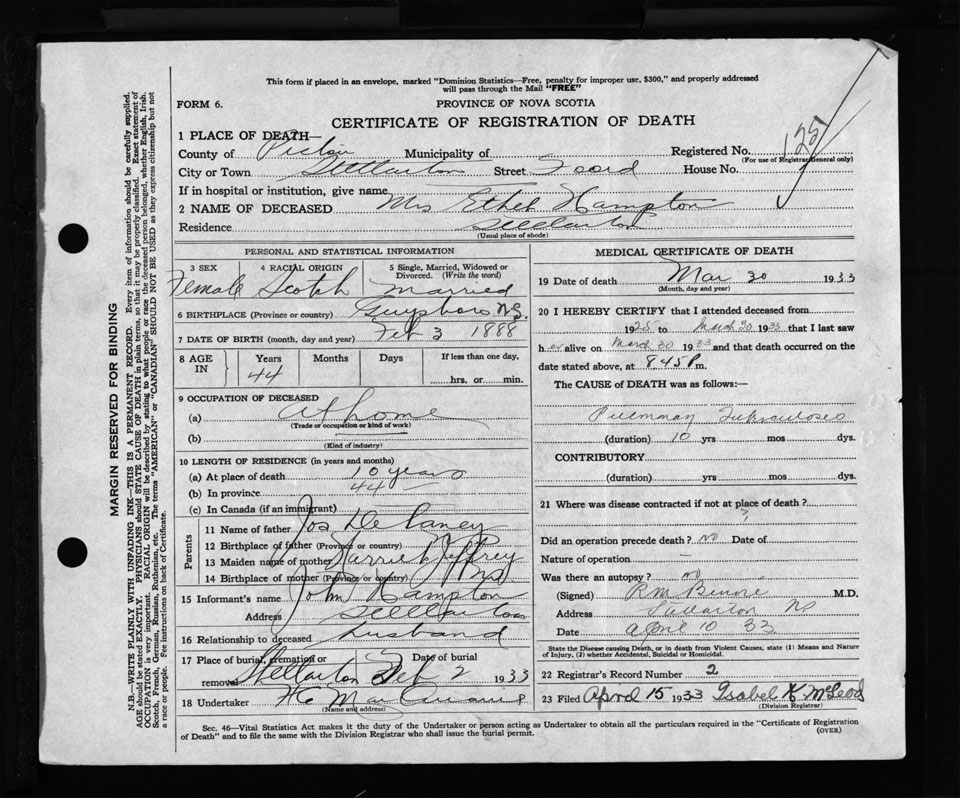 This form if placed in an envelope, marked "Dominion Statistics—Free, penalty for improper use, $300," and properly addressed
will pass through the Mail "FREE"
FORM 6.
PROVINCE OF NOVA SCOTIA
CERTIFICATE OF REGISTRATION OF DEATH
125
1 PLACE OF DEATH—
County of Pictou Municipality of Registered No.
(For use of Registrar General only)
City or Town Stellarton Street Foord House No.
If in hospital or institution, give name
2 NAME OF DECEASED Mrs Ethel Hampton
Residence Stellarton
(Usual place of abode)
PERSONAL AND STATISTICAL INFORMATION
3 SEX 4 RACIAL ORIGIN 5 Single, Married, Widowed or Divorced. (Write the word)
Female Scotch Married
6 BIRTHPLACE (Province or country) Guysboro N.S.
7 DATE OF BIRTH (month, day and year) Feb 3 1888
8 AGE IN Years Months Days If less than one day,
44 hrs. or min.
9 OCCUPATION OF DECEASED
(a) at home
(Trade or occupation or kind of work)
(b)
(Kind of industry)
10 LENGTH OF RESIDENCE (in years and months)
(a) At place of death 10 years
(b) In province 44
(c) In Canada (if an immigrant)
Parents
11 Name of father Jos Delaney
12 Birthplace of father (Province or country)
13 Maiden name of mother Harriet Jeffrey
14 Birthplace of mother (Province or country) NS
15 Informant's name John Hampton
Address Stellarton
16 Relationship to deceased husband
17 Place of burial, cremation or removal Stellarton Date of burial 2 1933
18 Undertaker
(Name and address)
MEDICAL CERTIFICATE OF DEATH
19 Date of death Mar 30 1933
(Month, day and year)
20 I HEREBY CERTIFY that I attended deceased from
1925 to March 30 1933 that I last saw
her alive on March 30 1933 and that death occurred on the
date stated above, at 8.45 P m.
The CAUSE OF DEATH was as follows:—
Pulmonary Tuberculosis
(duration) 10 yrs mos dys.
CONTRIBUTORY
(duration) yrs mos dys.
21 Where was disease contracted if not at place of death?
?
Did an operation precede death? no Date of
Nature of operation —
Was there an autopsy? no
(Signed) M.D.
Address Stellarton NS
Date April 10 33
State the Disease causing Death, or in death from Violent Causes, state (1) Means and Nature
of Injury, (2) whether Accidental, Suicidal or Homicidal.
22 Registrar's Record Number 2
23 Filed April 15 1933 Isabel K McLeod
(Division Registrar)
Sec. 46—Vital Statistics Act makes it the duty of the Undertaker or person acting as Undertaker to obtain all the particulars required in the "Certificate of Registration
of Death" and to file the same with the Division Registrar who shall issue the burial permit.
(OVER)
MARGIN RESERVED FOR BINDING
N.B.—WRITE PLAINLY WITH UNFADING INK—THIS IS A PERMANENT RECORD. Every item of information should be carefully supplied.
AGE should be stated EXACTLY. PHYSICIANS should STATE CAUSE OF DEATH in plain terms, so that it may be properly classified. Exact statement of
OCCUPATION is very important. RACIAL ORIGIN will be described by stating to what people or race the deceased person belonged, whether English, Irish,
Scotch, French, German, Russian, Ruthenian, etc. The terms "AMERICAN" or "CANADIAN" SHOULD NOT BE USED as they express citizenship but not
a race or people. See instructions on back of Certificate.